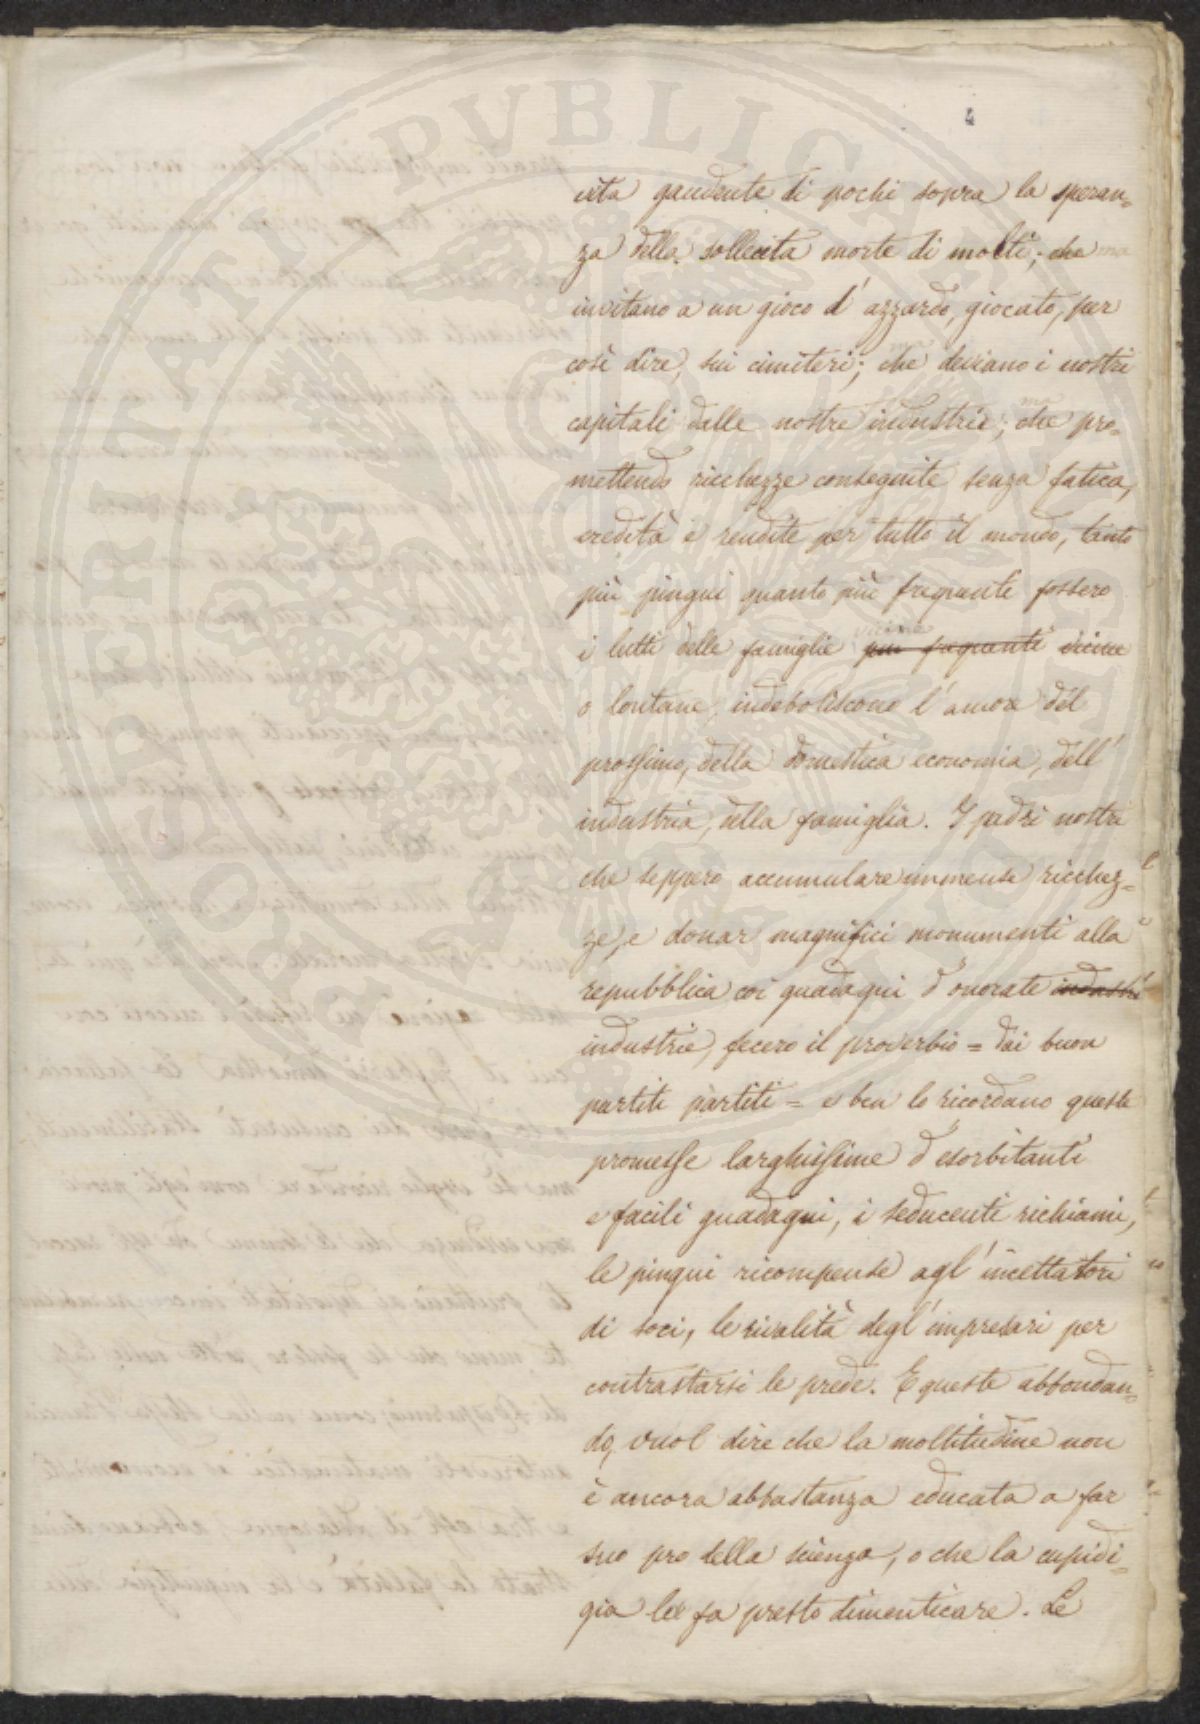 4
vita gaudente di pochi sopra la speran=
za della sollecita morte di molti; che ma
invitano a un gioco d'azzardo, giocato, per
così dire, sui cimiteri; che deviano i nostri
ma
capitali dalle nostre industrie; che pro=
mettendo ricchezze conseguite senza fatica,
eredità e rendite per tutto il mondo, tanto
più pingui quanto più frequente fossero
vicine
i lutti delle famiglie piu frequenti vicine
o lontane, indeboliscono l'amore del
prossimo, della domestica economia, dell'
industria, della famiglia. I padri nostri
che seppero accumulare immense ricchez=
ze, e donar magnifici monumenti alla
repubblica coi guadagni d'onorate industri
industrie, fecero il proverbio = dai buon
partiti pàrtiti = e ben lo ricordano queste
promesse larghissime d'esorbitanti
e facili guadagni, i seducenti richiami,
le pingui ricompense agl'incettatori
di soci, le rivalità degl'impresari per
contrastarsi le prede. E queste abbondan=
do, vuol dire che la moltitudine non
è ancora abbastanza educata a far
suo pro della scienza, o che la cupidi=
gia le fa presto dimenticare. Le